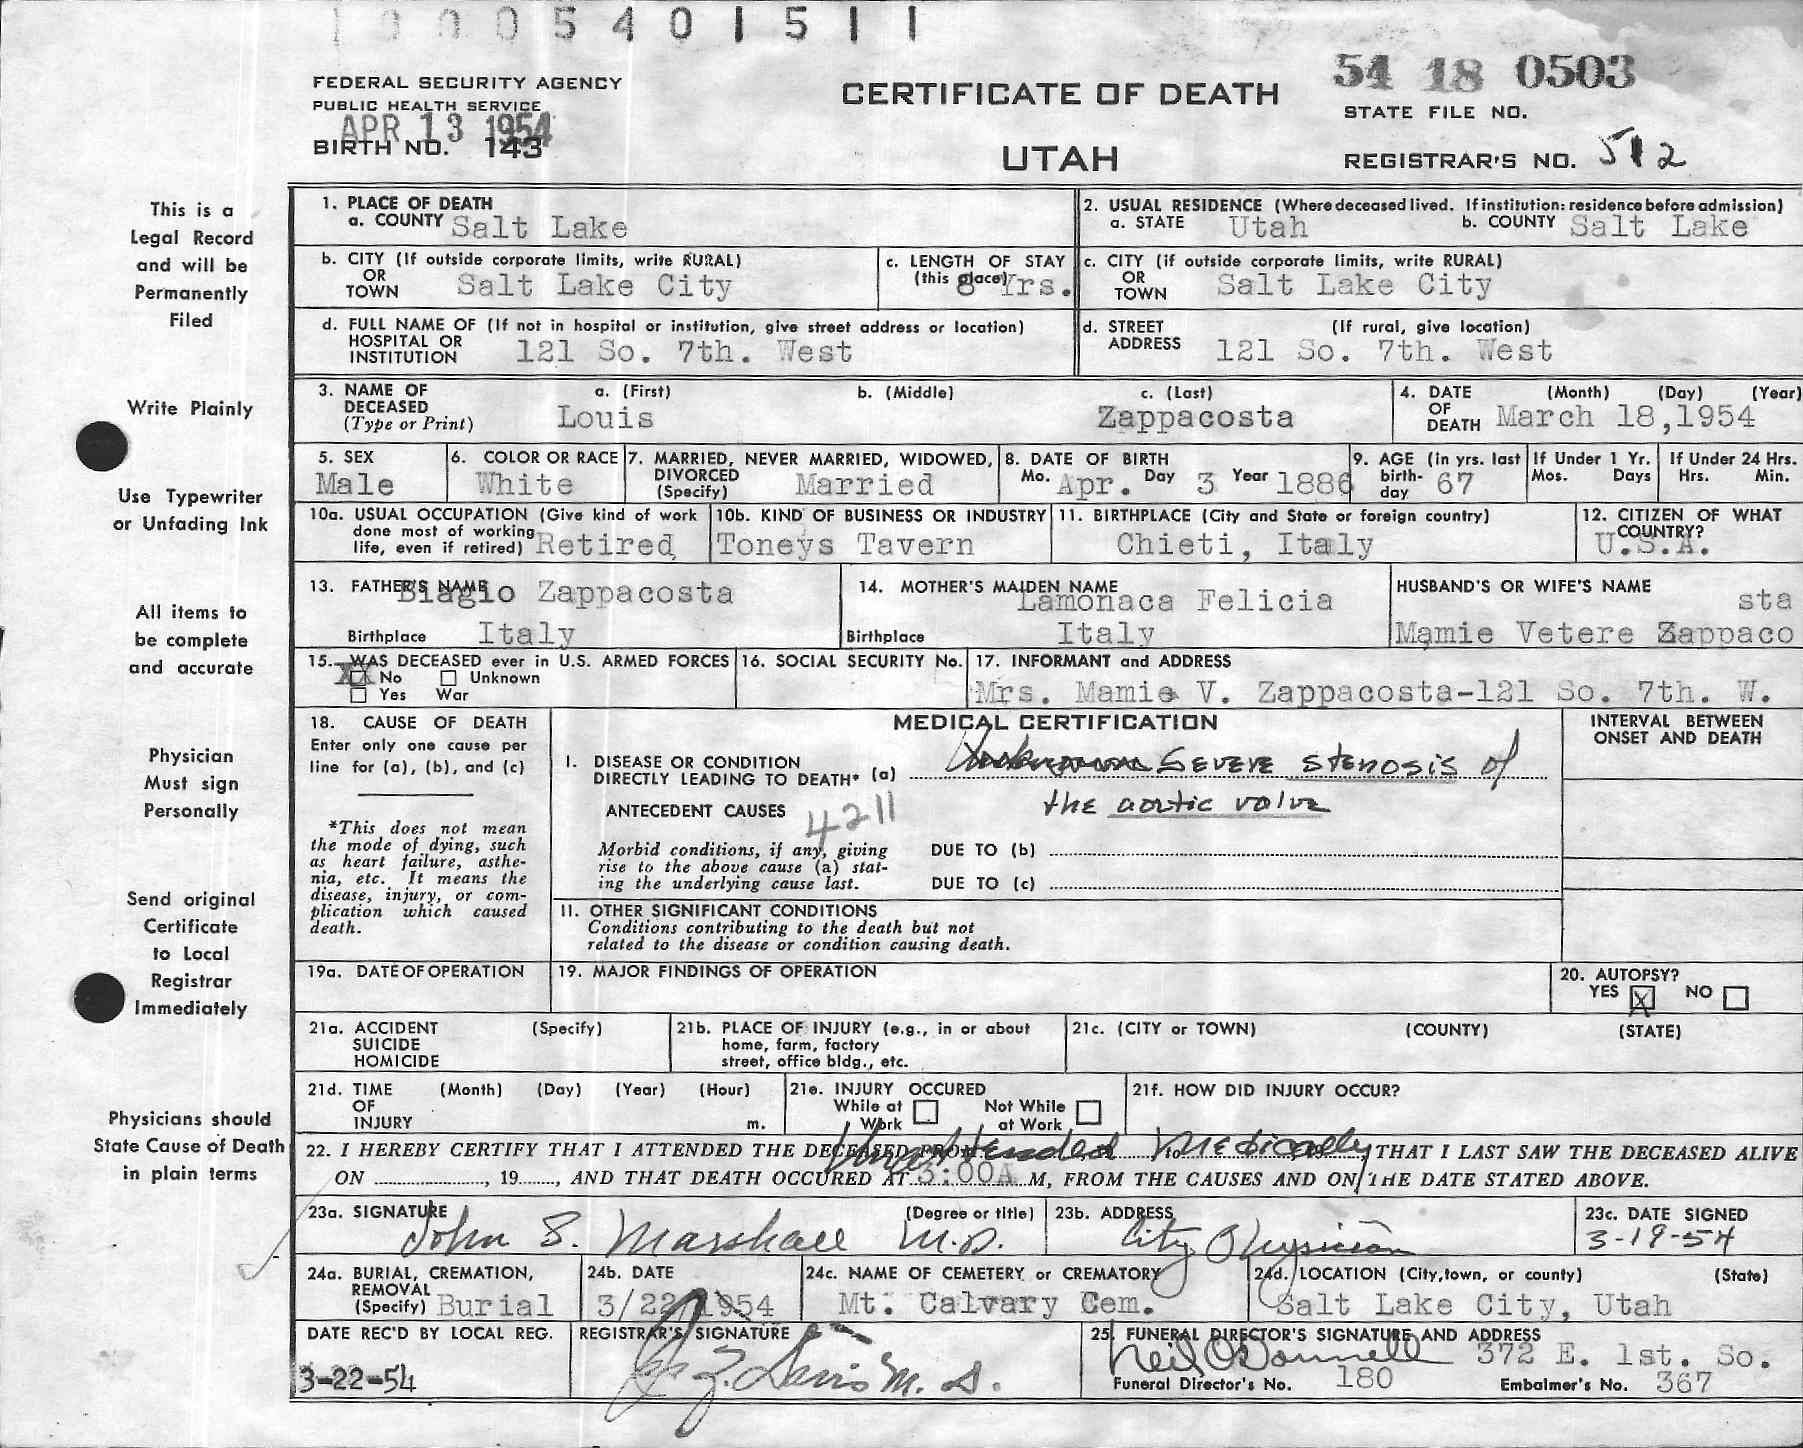 1 0 0 0 5 4 0 1 5 1 1
FEDERAL SECURITY AGENCY
PUBLIC HEALTH SERVICE
APR 13 1954
BIRTH NO. 143
CERTIFICATE OF DEATH
UTAH
54 18 0503
STATE FILE NO.
REGISTRAR'S NO. 512
This is a
Legal Record
and will be
Permanently
Filed
Write Plainly
Use Typewriter
or Unfading Ink
All items to
be complete
and accurate
Physician
Must sign
Personally
Send original
Certificate
to Local
Registrar
Immediately
Physicians should
State Cause of Death
in plain terms
1. PLACE OF DEATH
a. COUNTY Salt Lake
2. USUAL RESIDENCE (Where deceased lived. If institution: residence before admission)
a. STATE Utah b. COUNTY Salt Lake
b. CITY (If outside corporate limits, write RURAL)
OR
TOWN Salt Lake City
c. LENGTH OF STAY
(this place) Yrs.
c. CITY (if outside corporate limits, write RURAL)
OR
TOWN Salt Lake City
d. FULL NAME OF (If not in hospital or institution, give street address or location)
HOSPITAL OR
INSTITUTION 121 So. 7th. West
d. STREET (If rural, give location)
ADDRESS 121 So. 7th. West
3. NAME OF a. (First) b. (Middle) c. (Last)
DECEASED
(Type or Print) Louis Zappacosta
4. DATE (Month) (Day) (Year)
OF
DEATH March 18,1954
5. SEX
Male
6. COLOR OR RACE
White
7. MARRIED, NEVER MARRIED, WIDOWED,
DIVORCED
(Specify) Married
8. DATE OF BIRTH
Mo. Apr. Day 3 Year 1886
9. AGE (in yrs. last
birth-
day 67
If Under 1 Yr.
Mos. Days
If Under 24 Hrs.
Hrs. Min.
10a. USUAL OCCUPATION (Give kind of work
done most of working
life, even if retired) Retired
10b. KIND OF BUSINESS OR INDUSTRY
Toneys Tavern
11. BIRTHPLACE (City and State or foreign country)
Chieti, Italy
12. CITIZEN OF WHAT
COUNTRY?
U.S.A.
13. FATHER'S NAME
Biagio Zappacosta
Birthplace Italy
14. MOTHER'S MAIDEN NAME
Lamonaca Felicia
Birthplace Italy
HUSBAND'S OR WIFE'S NAME
sta
Mamie Vetere Zappaco
15. WAS DECEASED ever in U.S. ARMED FORCES
No Unknown
Yes War
16. SOCIAL SECURITY No.
17. INFORMANT and ADDRESS
Mrs. Mamie V. Zappacosta-121 So. 7th. W.
18. CAUSE OF DEATH
Enter only one cause per
line for (a), (b), and (c)
*This does not mean
the mode of dying, such
as heart failure, asthe-
nia, etc. It means the
disease, injury, or com-
plication which caused
death.
MEDICAL CERTIFICATION
I. DISEASE OR CONDITION
DIRECTLY LEADING TO DEATH* (a) Unknown Severe stenosis of
the aortic valve
ANTECEDENT CAUSES 4211
Morbid conditions, if any, giving
rise to the above cause (a) stat-
ing the underlying cause last.
DUE TO (b)
DUE TO (c)
II. OTHER SIGNIFICANT CONDITIONS
Conditions contributing to the death but not
related to the disease or condition causing death.
INTERVAL BETWEEN
ONSET AND DEATH
19a. DATE OF OPERATION
19. MAJOR FINDINGS OF OPERATION
20. AUTOPSY?
YES X NO
21a. ACCIDENT (Specify)
SUICIDE
HOMICIDE
21b. PLACE OF INJURY (e.g., in or about
home, farm, factory
street, office bldg., etc.
21c. (CITY or TOWN) (COUNTY) (STATE)
21d. TIME (Month) (Day) (Year) (Hour)
OF
INJURY m.
21e. INJURY OCCURED
While at Work Not While at Work
21f. HOW DID INJURY OCCUR?
22. I HEREBY CERTIFY THAT I ATTENDED THE DECEASED FROM Unattended to Medically THAT I LAST SAW THE DECEASED ALIVE
ON , 19 , AND THAT DEATH OCCURED AT 3:00A M, FROM THE CAUSES AND ON THE DATE STATED ABOVE.
23a. SIGNATURE (Degree or title)
John S. Marshall M.D.
23b. ADDRESS
City Physician
23c. DATE SIGNED
3-19-54
24a. BURIAL, CREMATION,
REMOVAL
(Specify) Burial
24b. DATE
3/22 1954
24c. NAME OF CEMETERY or CREMATORY
Mt. Calvary Cem.
24d. LOCATION (City, town, or county) (State)
Salt Lake City, Utah
DATE REC'D BY LOCAL REG.
3-22-54
REGISTRAR'S SIGNATURE
M. D.
25. FUNERAL DIRECTOR'S SIGNATURE AND ADDRESS
Neil O'Donnell 372 E. 1st. So.
Funeral Director's No. 180 Embalmer's No. 367